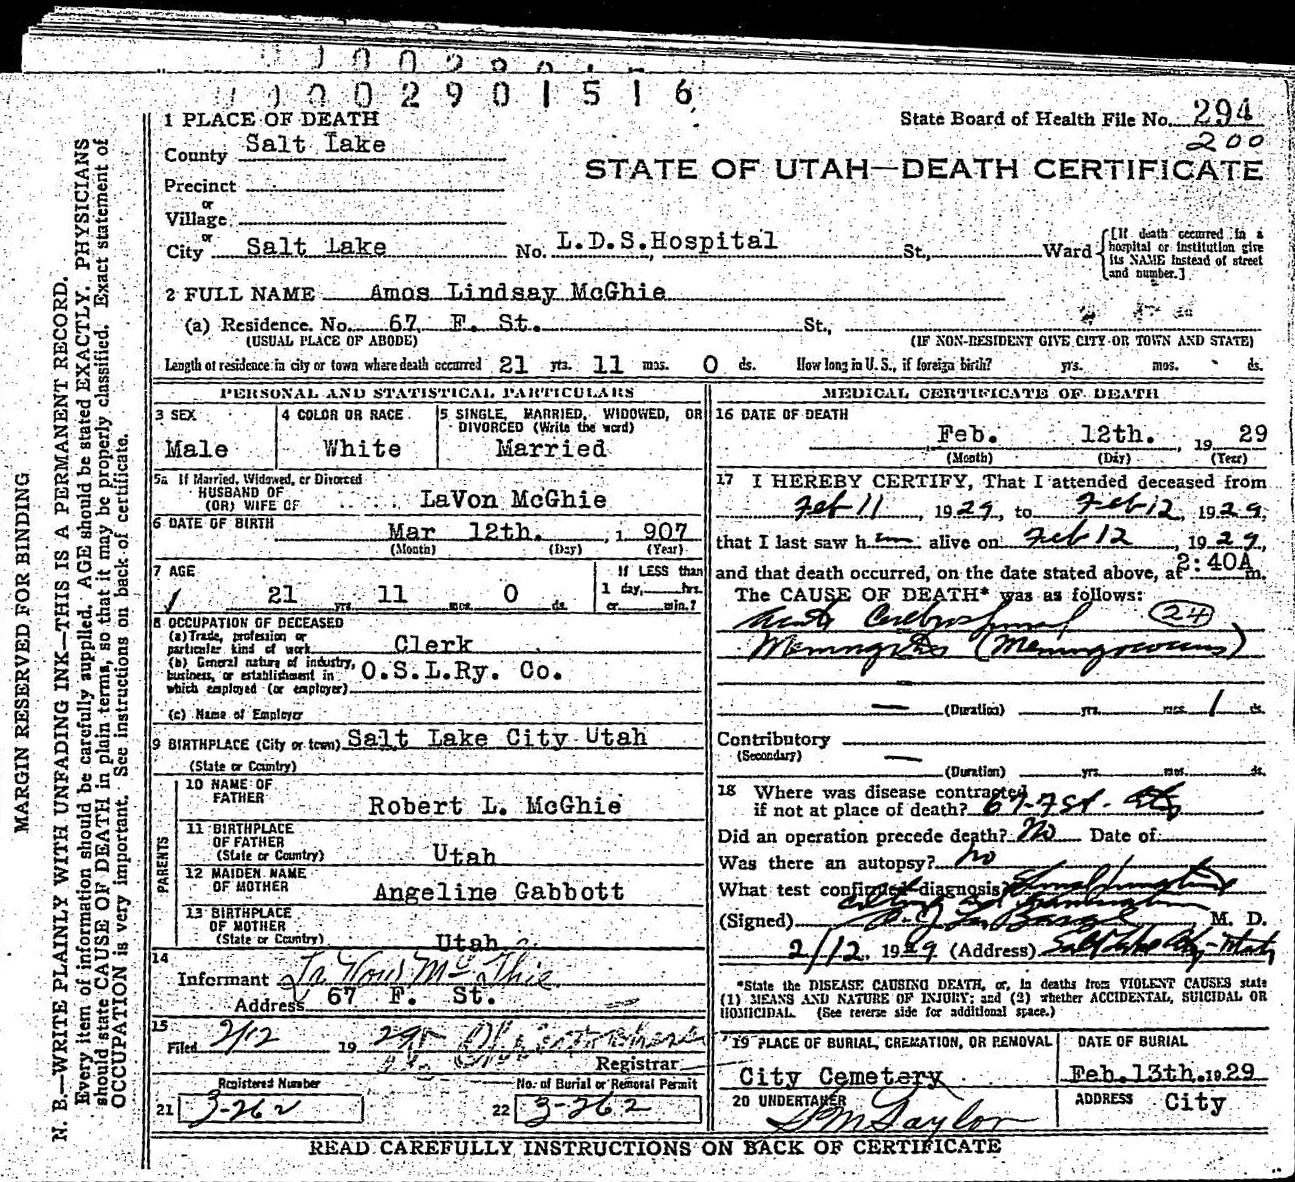 1 0 0 2 9 0 1 5 1 6
1 PLACE OF DEATH
State Board of Health File No. 294
200
County Salt Lake
STATE OF UTAH—DEATH CERTIFICATE
Precinct
or
Village
or
City Salt Lake No. L.D.S.Hospital St., Ward
[If death occurred in a hospital or institution give its NAME instead of street and number.]
2 FULL NAME Amos Lindsay McGhie
(a) Residence. No. 67 F. St. St.,
(USUAL PLACE OF ABODE) (IF NON-RESIDENT GIVE CITY OR TOWN AND STATE)
Length of residence in city or town where death occurred 21 yrs. 11 mos. 0 ds. How long in U. S., if foreign birth? yrs. mos. ds.
PERSONAL AND STATISTICAL PARTICULARS
3 SEX
Male
4 COLOR OR RACE
White
5 SINGLE, MARRIED, WIDOWED, OR
DIVORCED (Write the word)
Married
5a If Married, Widowed, or Divorced
HUSBAND OF
(OR) WIFE OF LaVon McGhie
6 DATE OF BIRTH Mar 12th. , 1 907
(Month) (Day) (Year)
7 AGE
21 yrs. 11 mos. 0 ds.
If LESS than
1 day, hrs.
or min.?
8 OCCUPATION OF DECEASED
(a) Trade, profession or
particular kind of work Clerk
(b) General nature of industry,
business, or establishment in
which employed (or employer) O.S.L.Ry. Co.
(c) Name of Employer
9 BIRTHPLACE (City or town) Salt Lake City Utah
(State or Country)
PARENTS
10 NAME OF
FATHER Robert L. McGhie
11 BIRTHPLACE
OF FATHER
(State or Country) Utah
12 MAIDEN NAME
OF MOTHER Angeline Gabbott
13 BIRTHPLACE
OF MOTHER
(State or Country) Utah
14
Informant
Address 67 F. St.
15
Filed 2/12 19 29
Registrar
Registered Number
21 3-262
No. of Burial or Removal Permit
22 3-262
MEDICAL CERTIFICATE OF DEATH
16 DATE OF DEATH
Feb. 12th. , 19 29
(Month) (Day) (Year)
17 I HEREBY CERTIFY, That I attended deceased from
Feb 11 , 1929, to Feb 12, 1929,
that I last saw h im alive on Feb 12 , 1929,
and that death occurred, on the date stated above, at 2:40A m.
The CAUSE OF DEATH* was as follows:
Acute Cerebrospinal 24
Meningitis (Meningococcus)
(Duration) yrs. mos. 1 ds.
Contributory
(Secondary)
(Duration) yrs. mos. ds.
18 Where was disease contracted
if not at place of death? 67-7 St. City
Did an operation precede death? No Date of
Was there an autopsy? no
What test confirmed diagnosis?
(Signed) M. D.
2/12, 1929 (Address) Salt Lake City-Utah
*State the DISEASE CAUSING DEATH, or, in deaths from VIOLENT CAUSES state
(1) MEANS AND NATURE OF INJURY; and (2) whether ACCIDENTAL, SUICIDAL OR
HOMICIDAL. (See reverse side for additional space.)
19 PLACE OF BURIAL, CREMATION, OR REMOVAL
City Cemetery
DATE OF BURIAL
Feb.13th.1929
20 UNDERTAKER
S M Taylor
ADDRESS City
READ CAREFULLY INSTRUCTIONS ON BACK OF CERTIFICATE
MARGIN RESERVED FOR BINDING
N. B.—WRITE PLAINLY WITH UNFADING INK—THIS IS A PERMANENT RECORD.
Every item of information should be carefully supplied. AGE should be stated EXACTLY. PHYSICIANS
should state CAUSE OF DEATH in plain terms, so that it may be properly classified. Exact statement of
OCCUPATION is very important. See instructions on back of certificate.